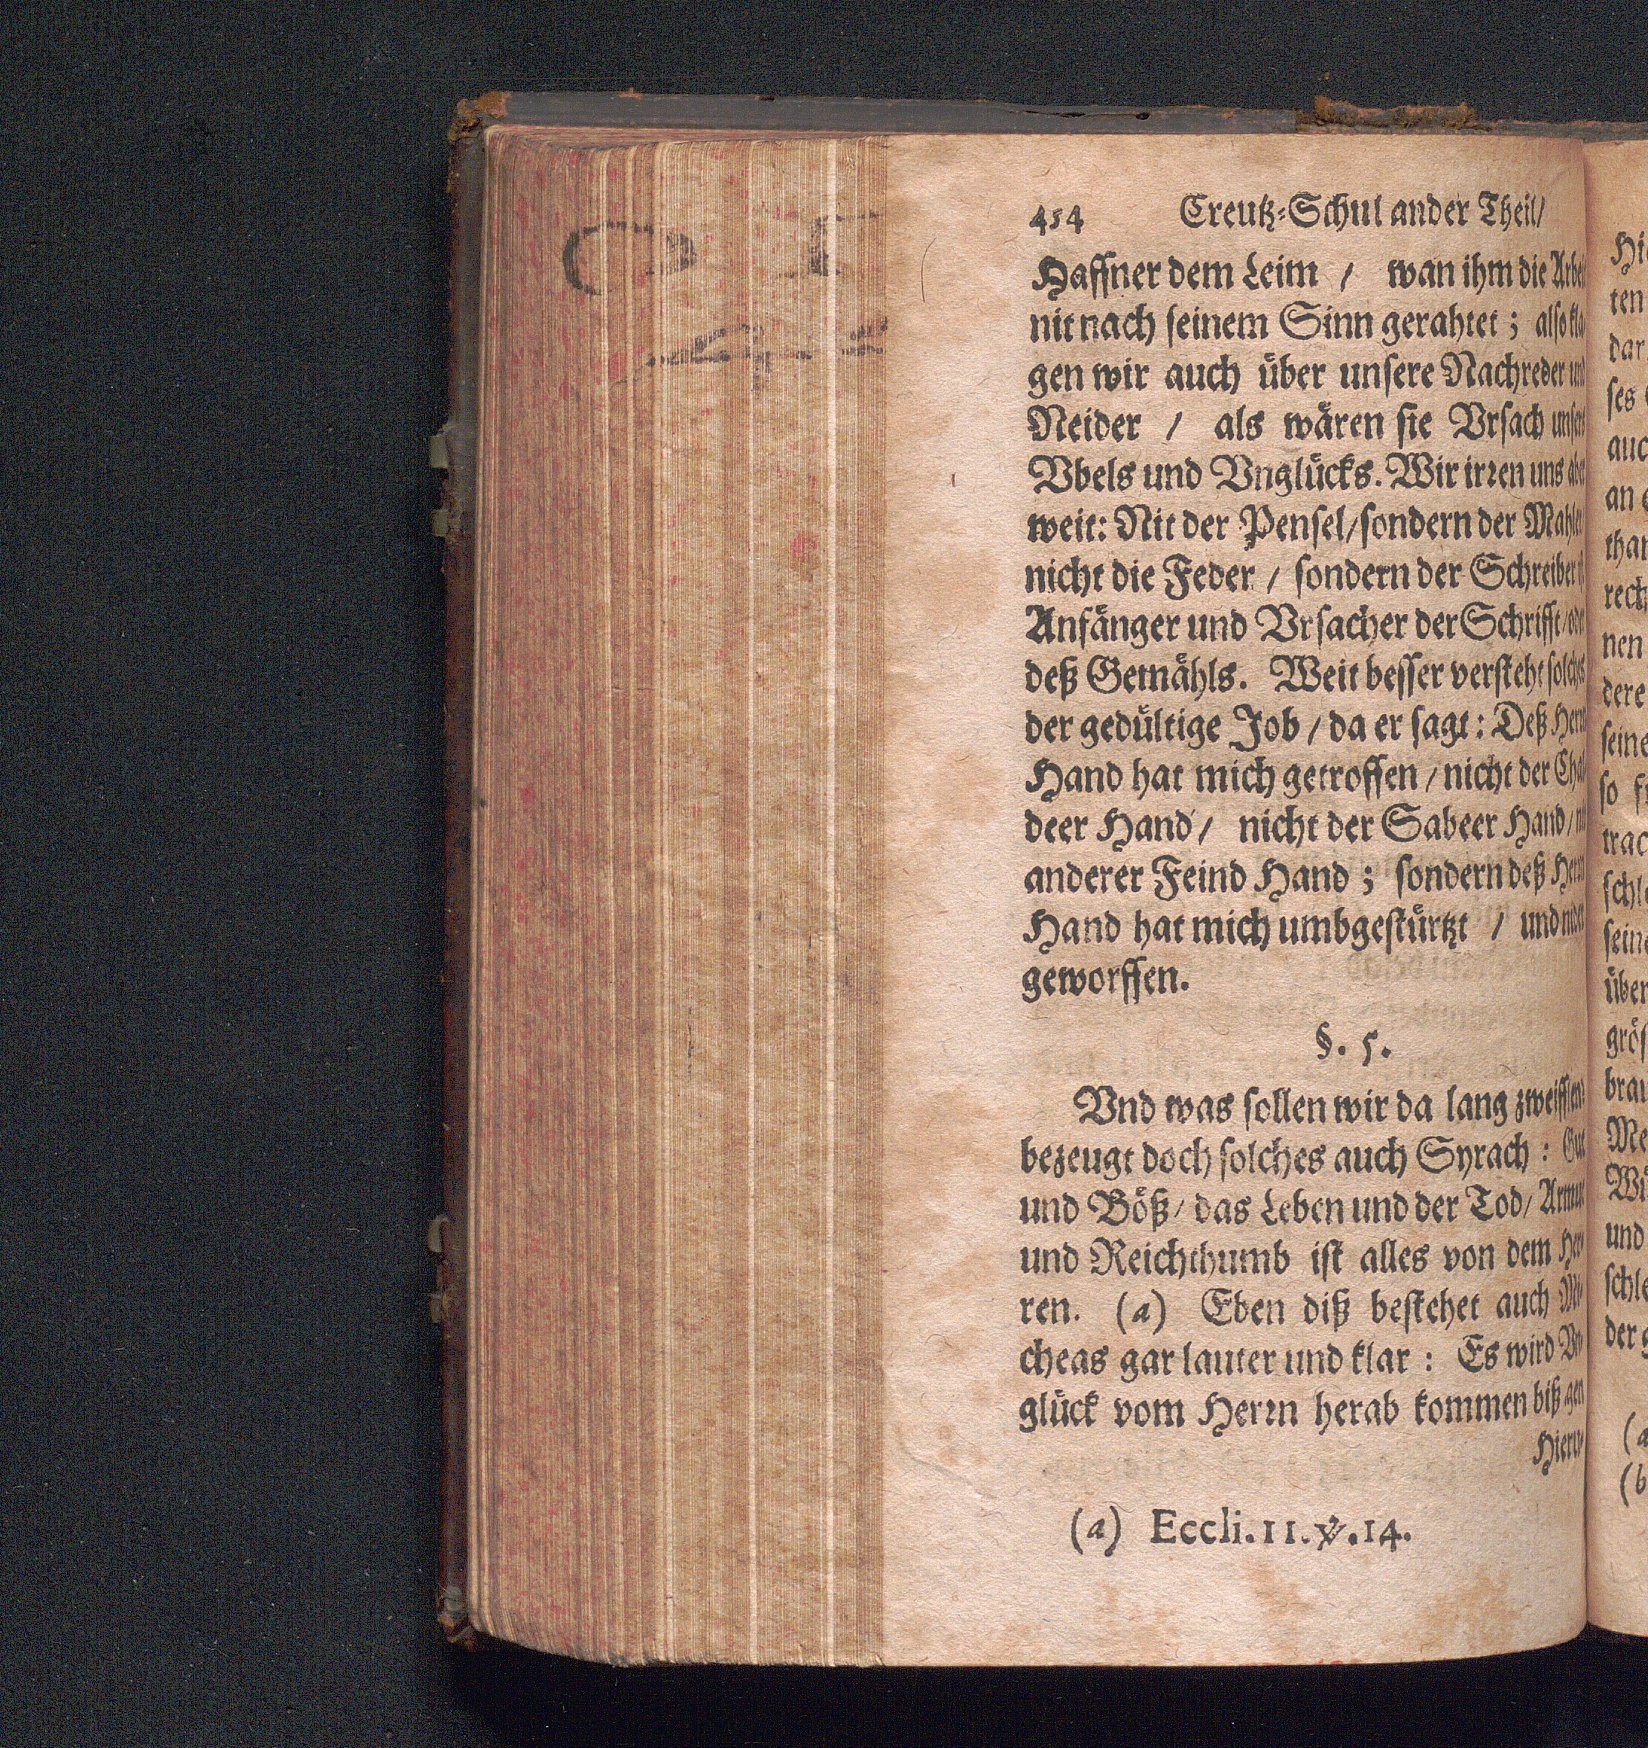 454 Creutz-Schul ander Theil/
Haffner dem Leim / wan ihm die Arbeit
nit nach seinem Sinn gerahtet; also kla
gen wir auch über unsere Nachreder und
Neider / als wären sie Vrsach unsers
Vbels und Vnglücks. Wir irren uns aber
weit: Nit der Pensel/sondern der Mahler
nicht die Feder / sondern der Schreiber
Anfänger und Vrsacher der Schrifft/oder
deß Gemähls. Weit besser versteht solches
der gedültige Job / da er sagt: Deß Herrn
Hand hat mich getroffen / nicht der Chal
deer Hand / nicht der Sabeer Hand /
anderer Feind Hand; sondern deß Herrn
Hand hat mich umbgestürtzt / und nider
geworffen.
§. 5.
Vnd was sollen wir da lang zweifflen?
bezeugt doch solches auch Syrach: Gut
und Böß/ das Leben und der Tod/ Armut
und Reichthumb ist alles von dem Her
ren. (a) Eben diß bestehet auch Mi
cheas gar lauter und klar: Es wird Vn
glück vom Herrn herab kommen biß gen
(a) Eccli. 11. ℣. 14.
Hi
ten
dar
ses
auc
an
than
rech
nen
dere
seine
so
trac
schl
sein
über
grös
brau
Me
Wü
und
schle
der
(a
(b